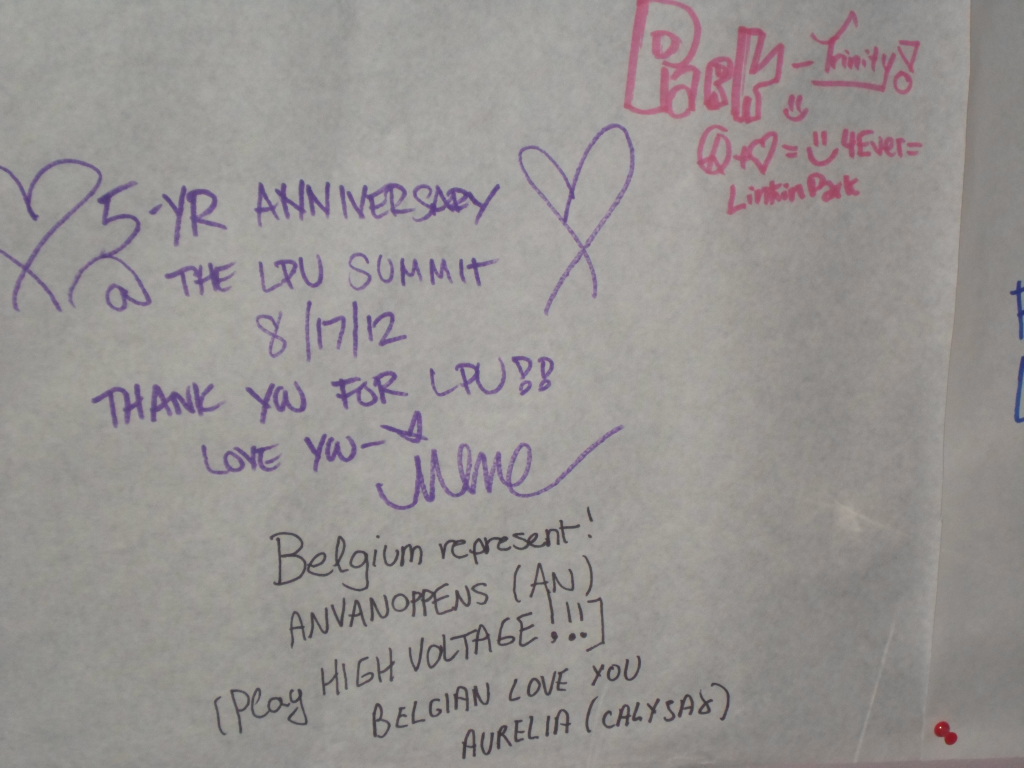 Park - Trinity!
+ = 4Ever =
Linkin Park
5-YR ANNIVERSARY
@ THE LPU SUMMIT
8/17/12
THANK YOU FOR LPU!!
LOVE YOU-
Belgium represent!
ANVANOPPENS (AN)
[Play HIGH VOLTAGE!!!]
BELGIAN LOVE YOU
AURELIA (CALYSAX)